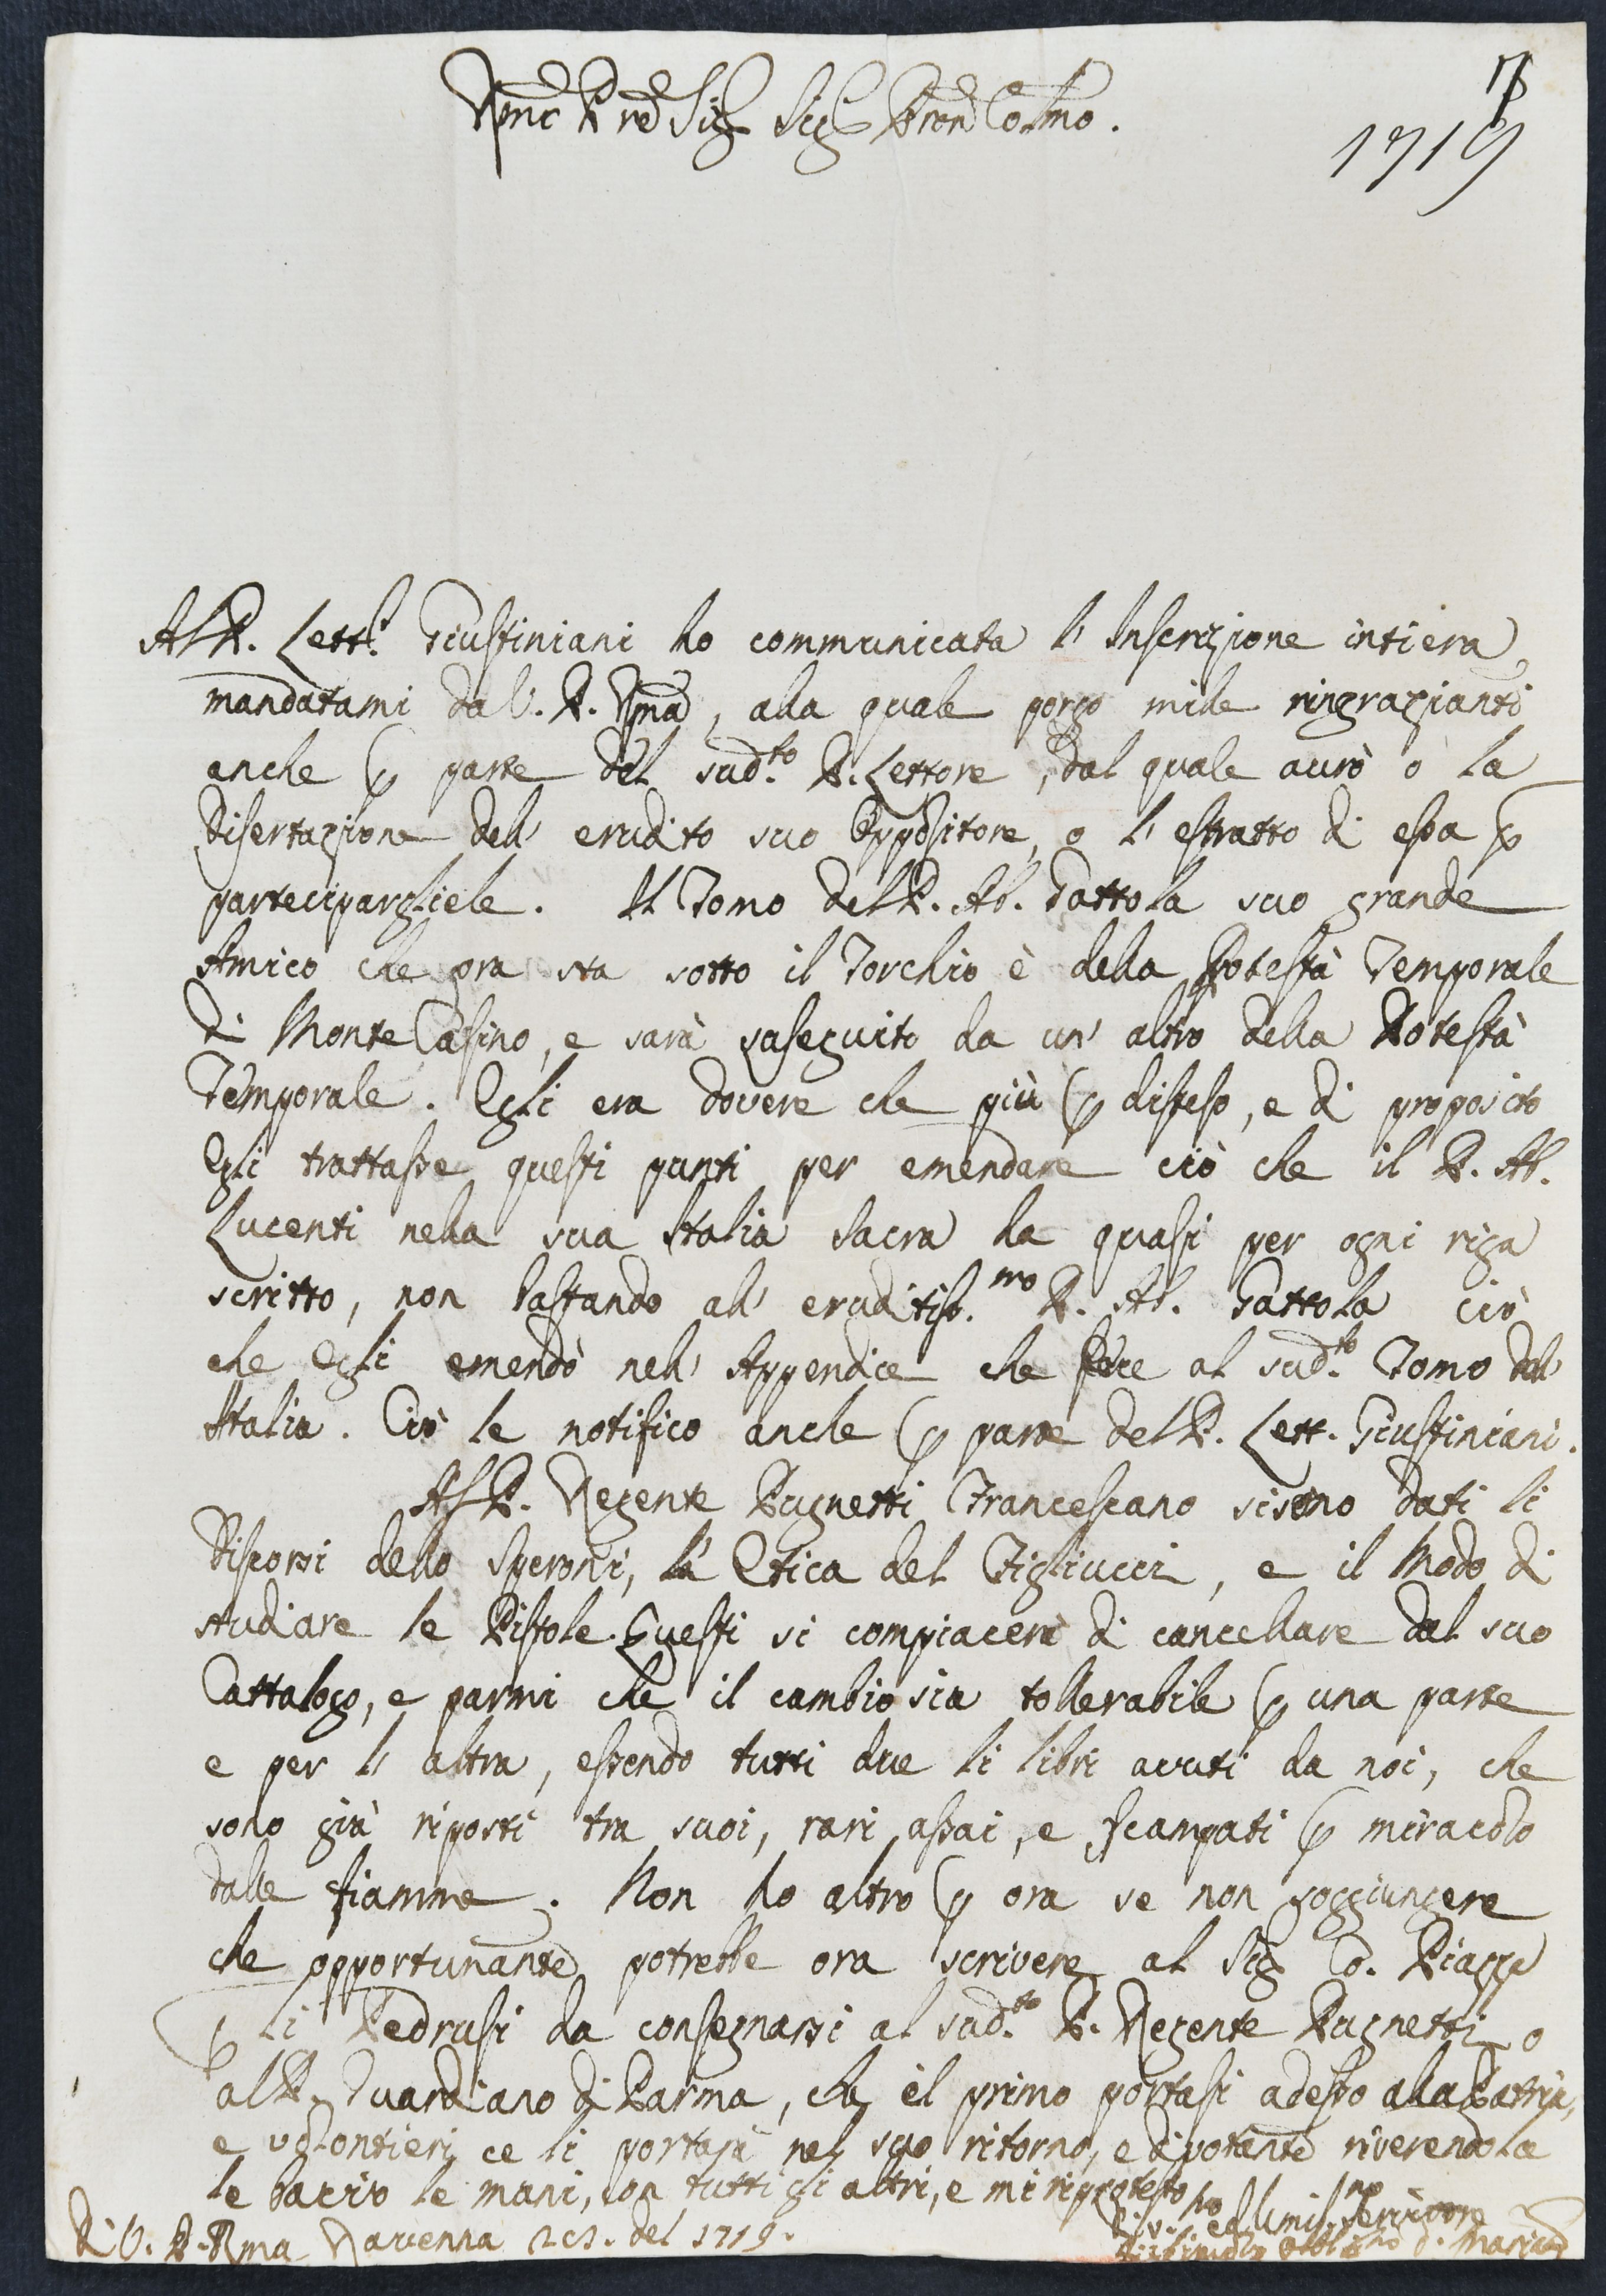 Rmo P. rõ Sig. Sig. Pron Colmo.
1719
Al P. Lett.e Giustiniani ho communicata l' Inscrizione intiera
mandatami da V. P. Rma, alla quale porgo mille ringrazianti
anche p parte del sud.to P. Lettore, dal quale aurò o la
Disertazione dell' erudito suo Oppositore, o l' estratto di essa p
partecipargliele. Il Tomo del P. Ab. Gattola suo grande
Amico che ora sta sotto il Torchio è della Potestà Temporale
di Monte Casino, e sarà saseguito da un' altro della Potestà
Temporale. Egli era dovere che più p disteso, e di proposito
Egli trattasse questi punti per emendare ciò che il P. Ab.
Lucenti nella sua Italia Sacra ha quasi per ogni riga
scritto, non bastando all' eruditiss.mo P. Ab. Gattola ciò
che Egli emendò nell' Appendice che fece al sud.to Tomo dell'
Italia. Ciò le notifico anche p parte del P. Lett. Giustiniani.
Al P. Regente Pugnetti Francescano si sono dati li
Discorsi dello Speroni, la Etica del Figliucci, e il Modo di
studiare le Pistole. Questi si compiacerà di cancellare dal suo
Cattalogo, e parmi che il cambio sia tollerabile p una parte
e per l' altra, essendo tutti due li libri avuti da noi, che
sono già riposti tra suoi, rari assai, e scampati p miracolo
dalle fiamme. Non ho altro p ora se non soggiungere
che opportunante potrebbe ora scrivere al Sig Co. Piazza
p li Pedrusi da consegnarsi al sud.to P. Regente Pugnetti o
al P. Guardiano di Parma, che il primo portasi adesso alla Patria,
e volontieri ce li portarà nel suo ritorno, e divotante riverendola
le bacio le mani, con tutti gli altri, e mi riprotesto
Di V. P. Rma Ravenna del 1719.
Umil.mo Servitore
D. Mariano